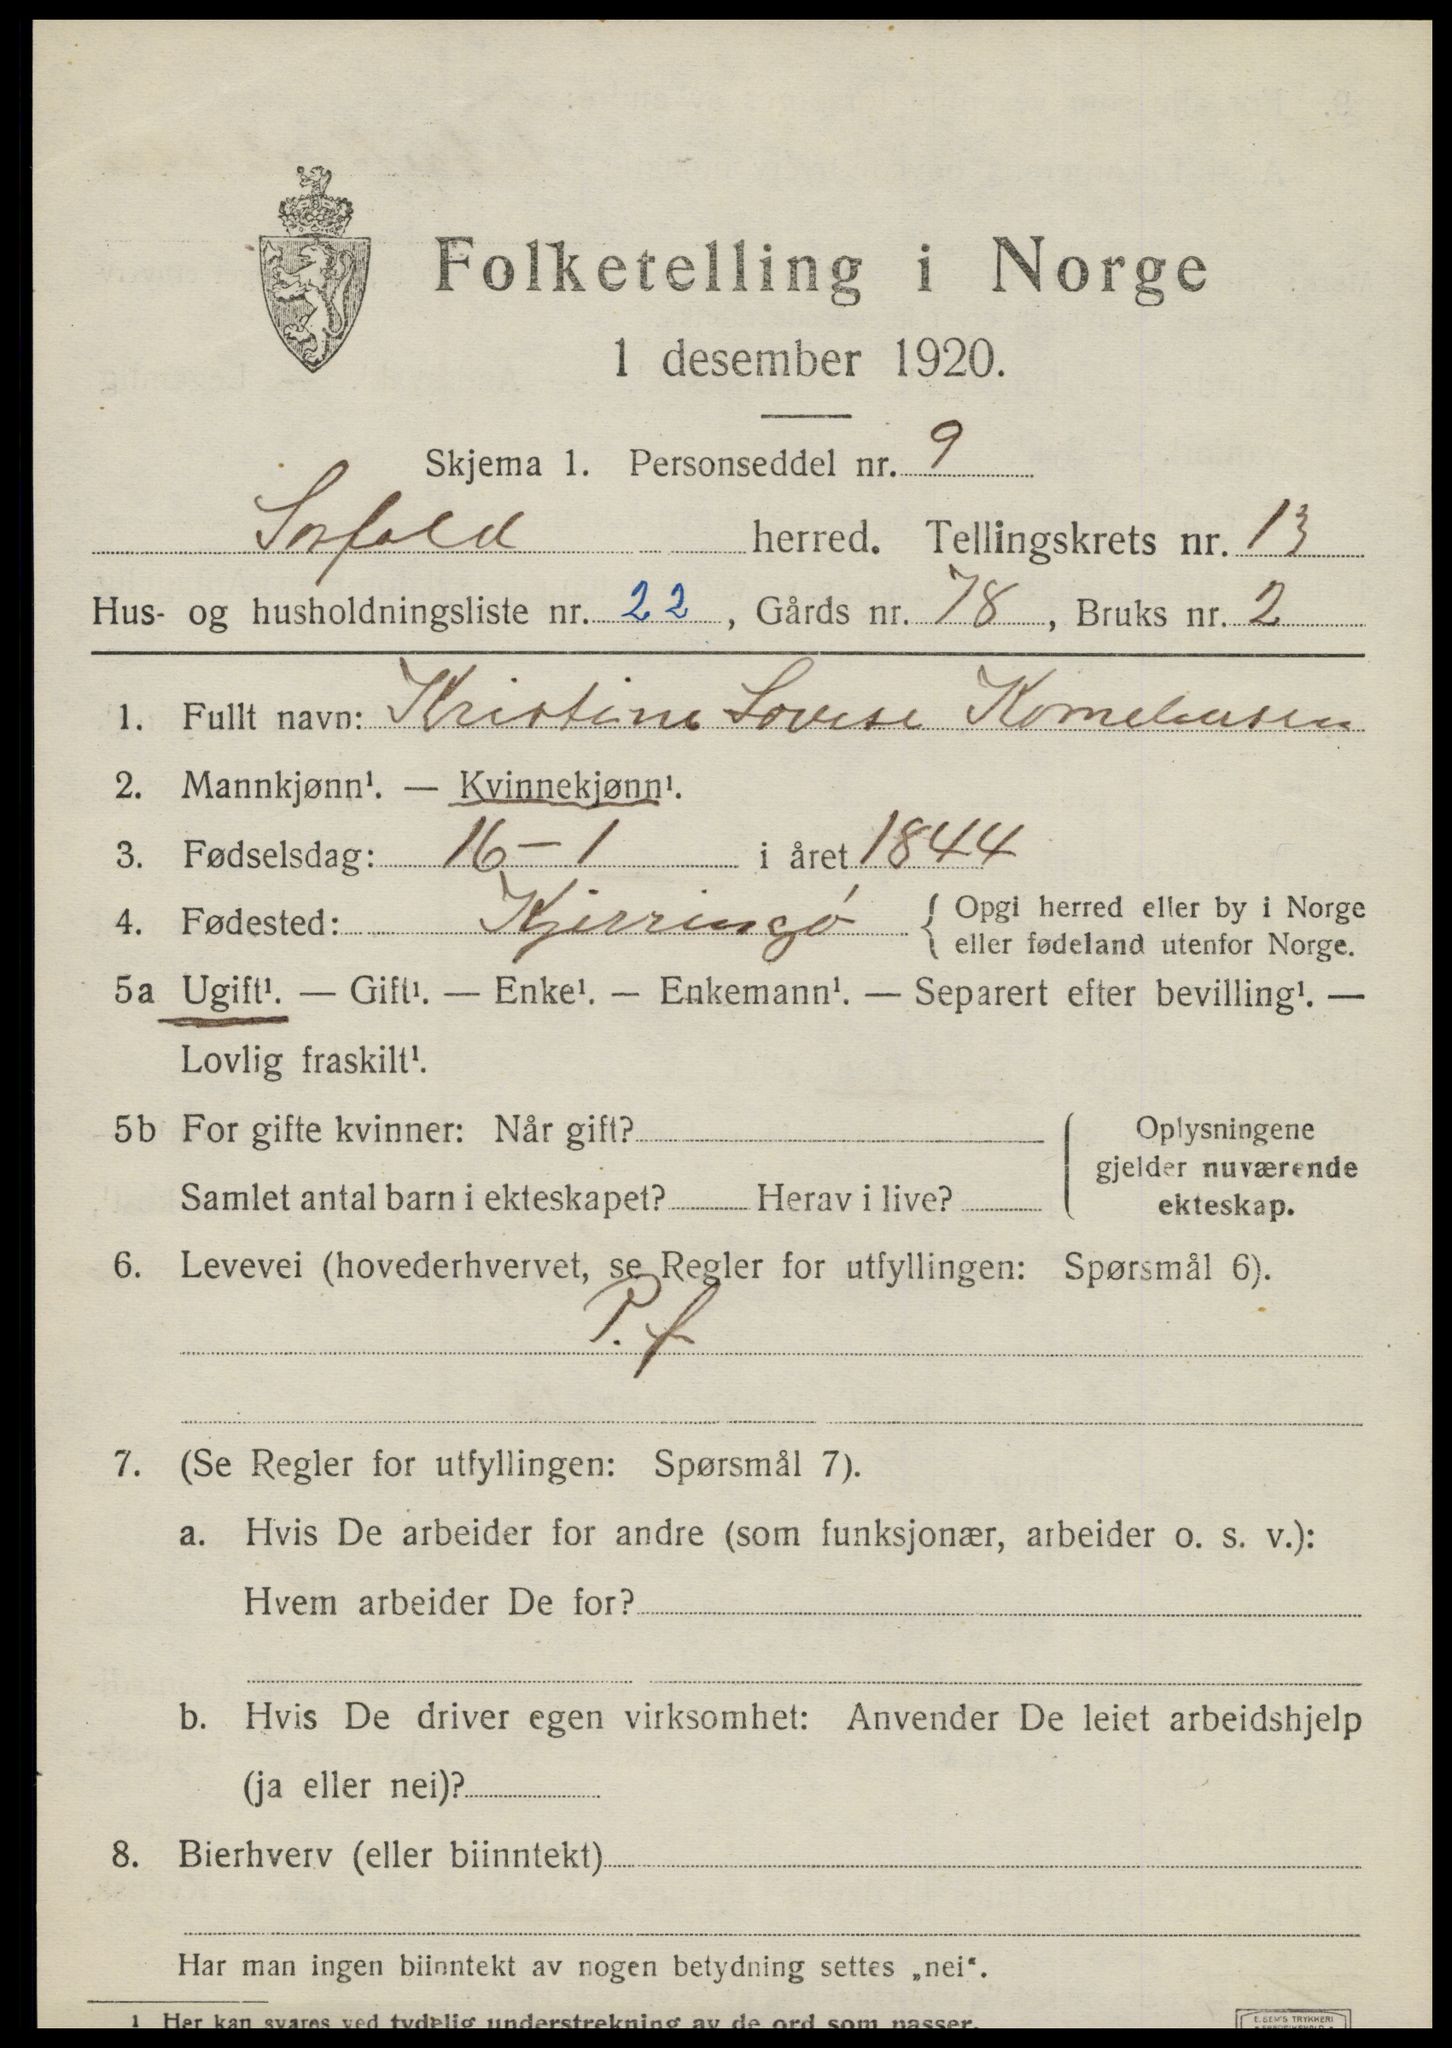 Folketelling i Norge
1 desember 1920.
Skjema 1. Personseddel nr. 9
Sørfold herred. Tellingskrets nr. 13
Hus- og husholdningsliste nr. 22, Gårds nr. 78, Bruks nr. 2
1. Fullt navn: Kristine Lovise Korneliusen
2. Mannkjønn¹. — Kvinnekjønn¹.
3. Fødselsdag: 16-1 i året 1844
4. Fødested: Kjerringø { Opgi herred eller by i Norge
eller fødeland utenfor Norge.
5a Ugift¹. — Gift¹. — Enke¹. — Enkemann¹. — Separert efter bevilling¹. —
Lovlig fraskilt¹.
5b For gifte kvinner: Når gift?
Samlet antal barn i ekteskapet? Herav i live?
Oplysningene
gjelder nuværende
ekteskap.
6. Levevei (hovederhvervet, se Regler for utfyllingen: Spørsmål 6).
P. f
7. (Se Regler for utfyllingen: Spørsmål 7).
a. Hvis De arbeider for andre (som funksjonær, arbeider o. s. v.):
Hvem arbeider De for?
b. Hvis De driver egen virksomhet: Anvender De leiet arbeidshjelp
(ja eller nei)?
8. Bierhverv (eller biinntekt)
Har man ingen biinntekt av nogen betydning settes „nei“.
1 Her kan svares ved tydelig understrekning av de ord som passer.
E. SEM'S TRYKKERI